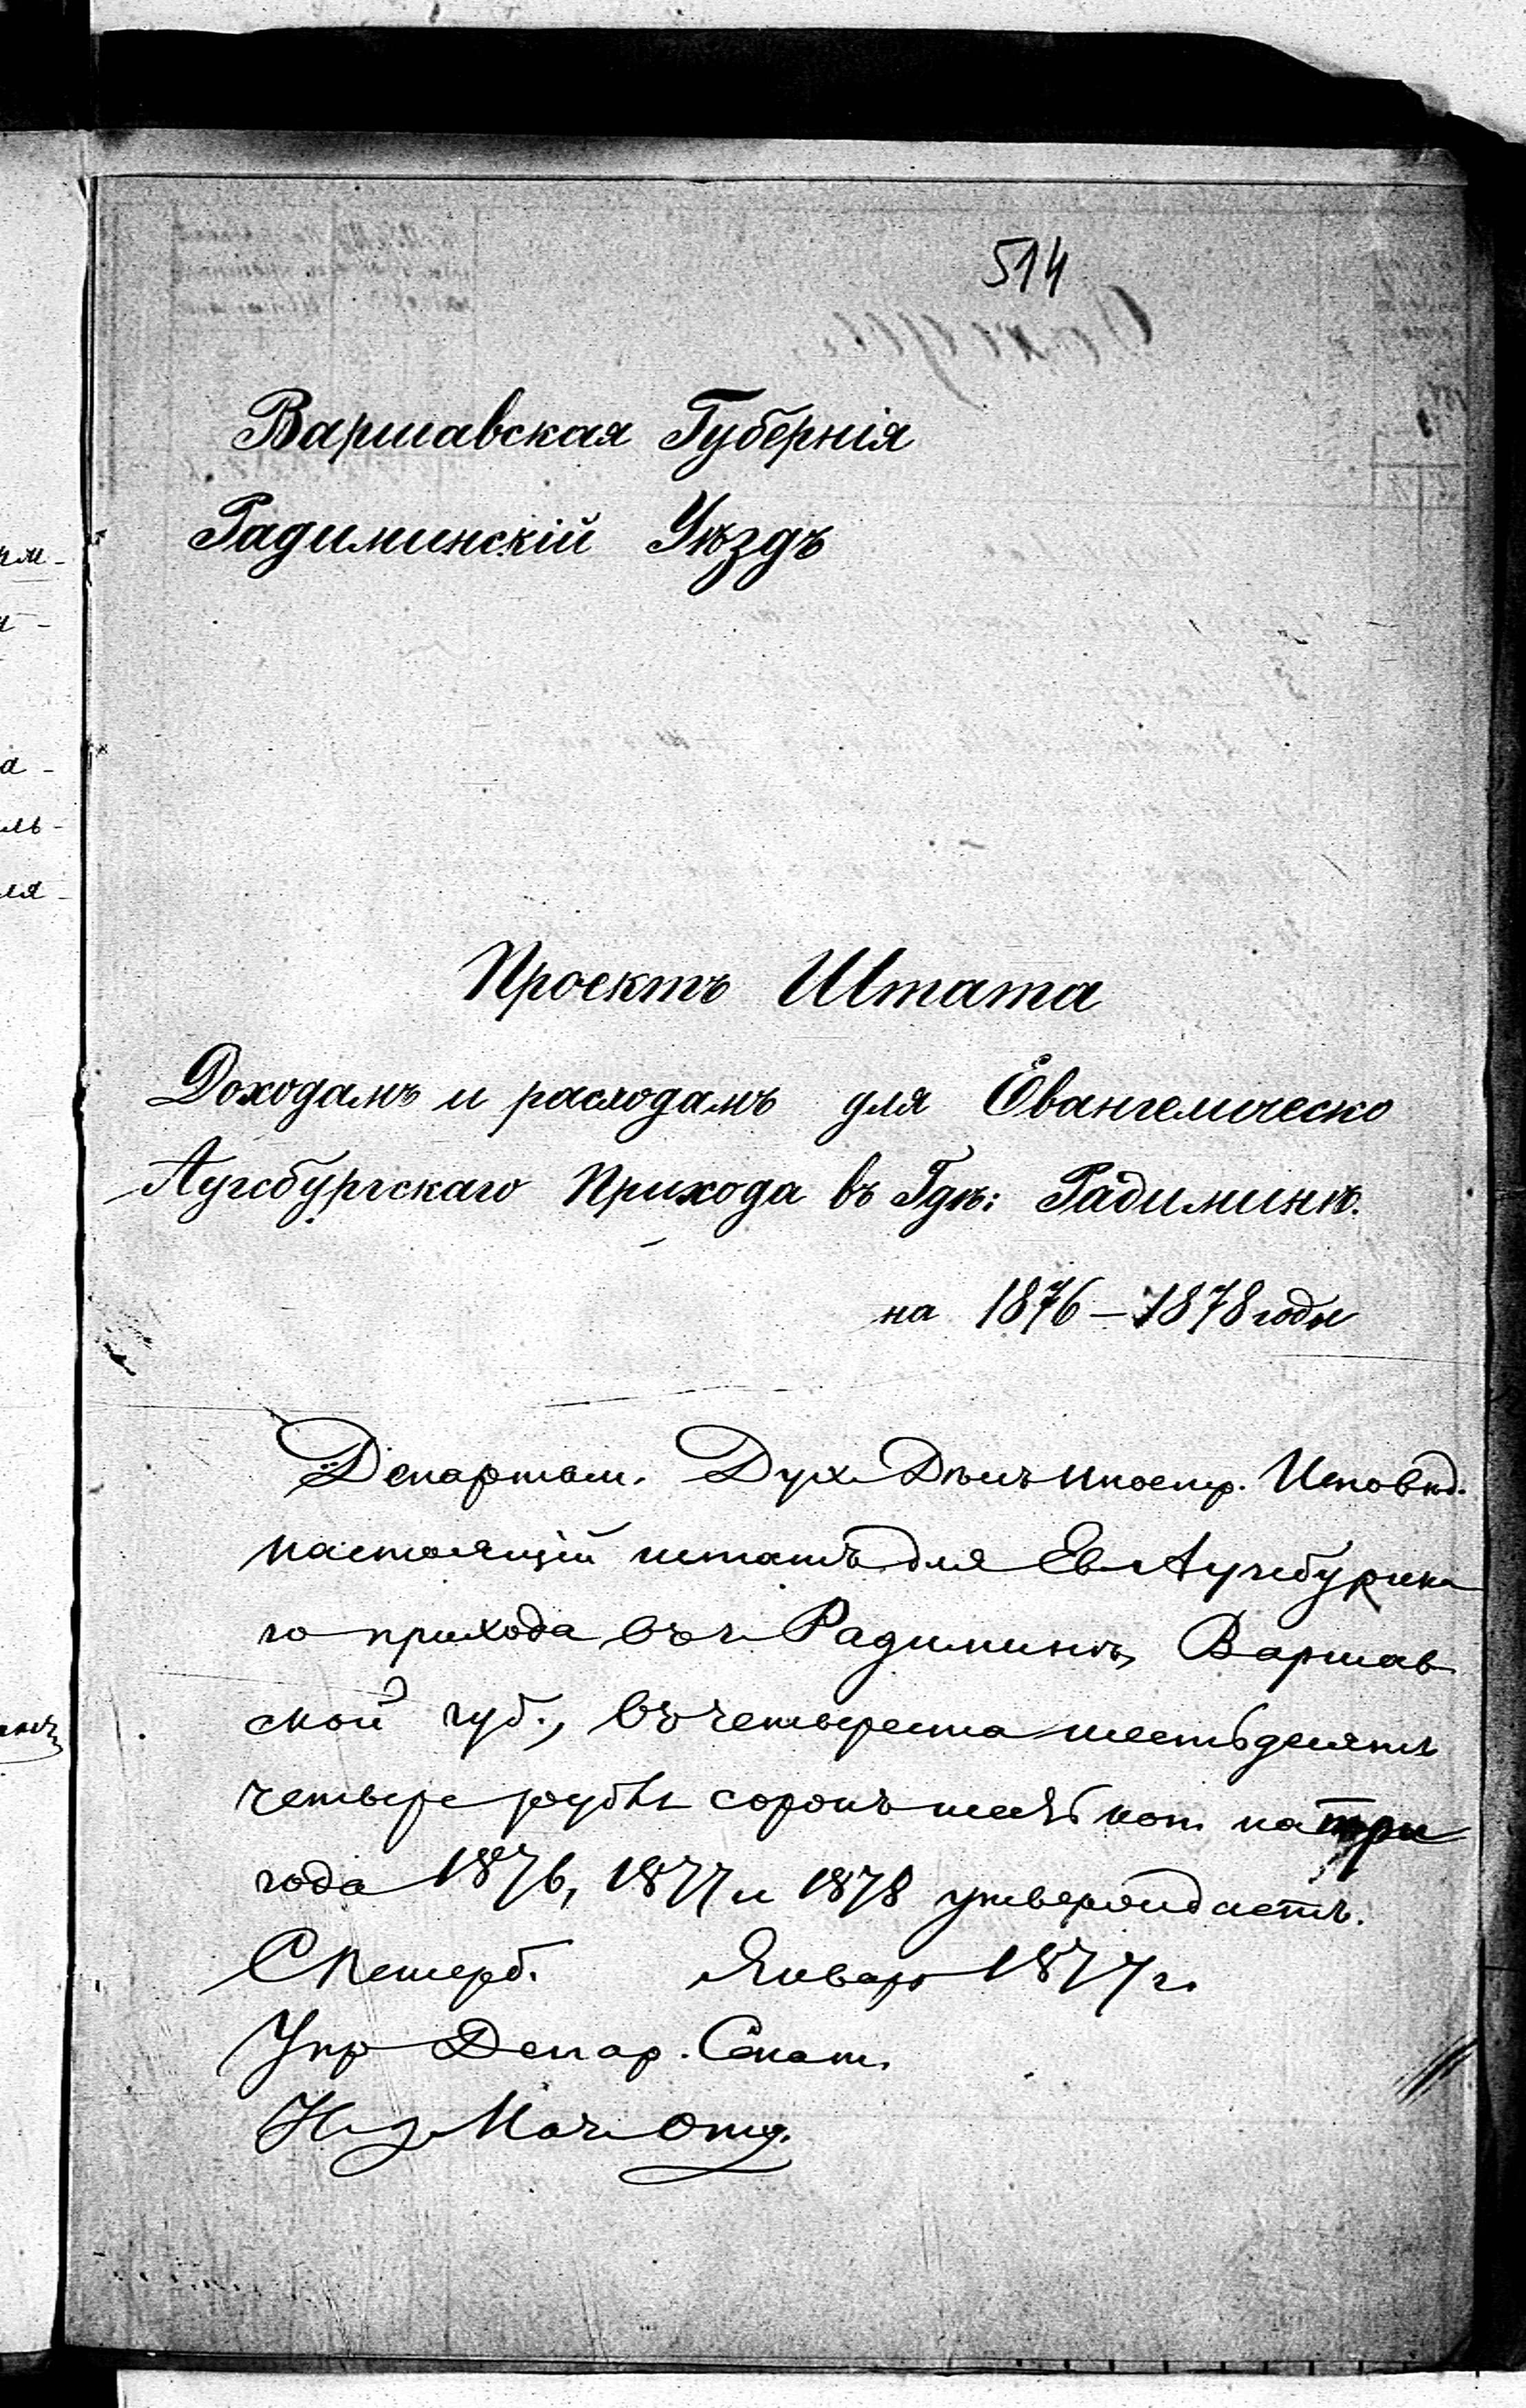 514
Варшавская Губернія
Радиминскій Уѣздъ
Проектъ Штата
Доходамъ и расходамъ для Евангелическо
Аугсбургскаго Прихода въ Гдѣ: Радиминѣ.
на 1876–1878 годы
Департам. Дух. Дѣлъ Иностр. Исповѣд.
настоящій штатъ для Ев. Аугсбургска
го прихода въ г. Радиминѣ, Варшав
ской губ., въ четыреста шестьдесятъ
четыре рубля сорокъ шесть коп. на три
года 1876, 1877 и 1878 утверждаетъ.
С Петерб. Январ 1877 г.
Упр Депар.
Нач Отд.